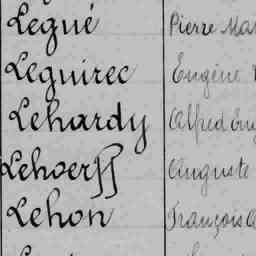 Legué Pierre
Leguirec Eugène
Lehardy Alfred
Lehoerff Auguste
Lehon François